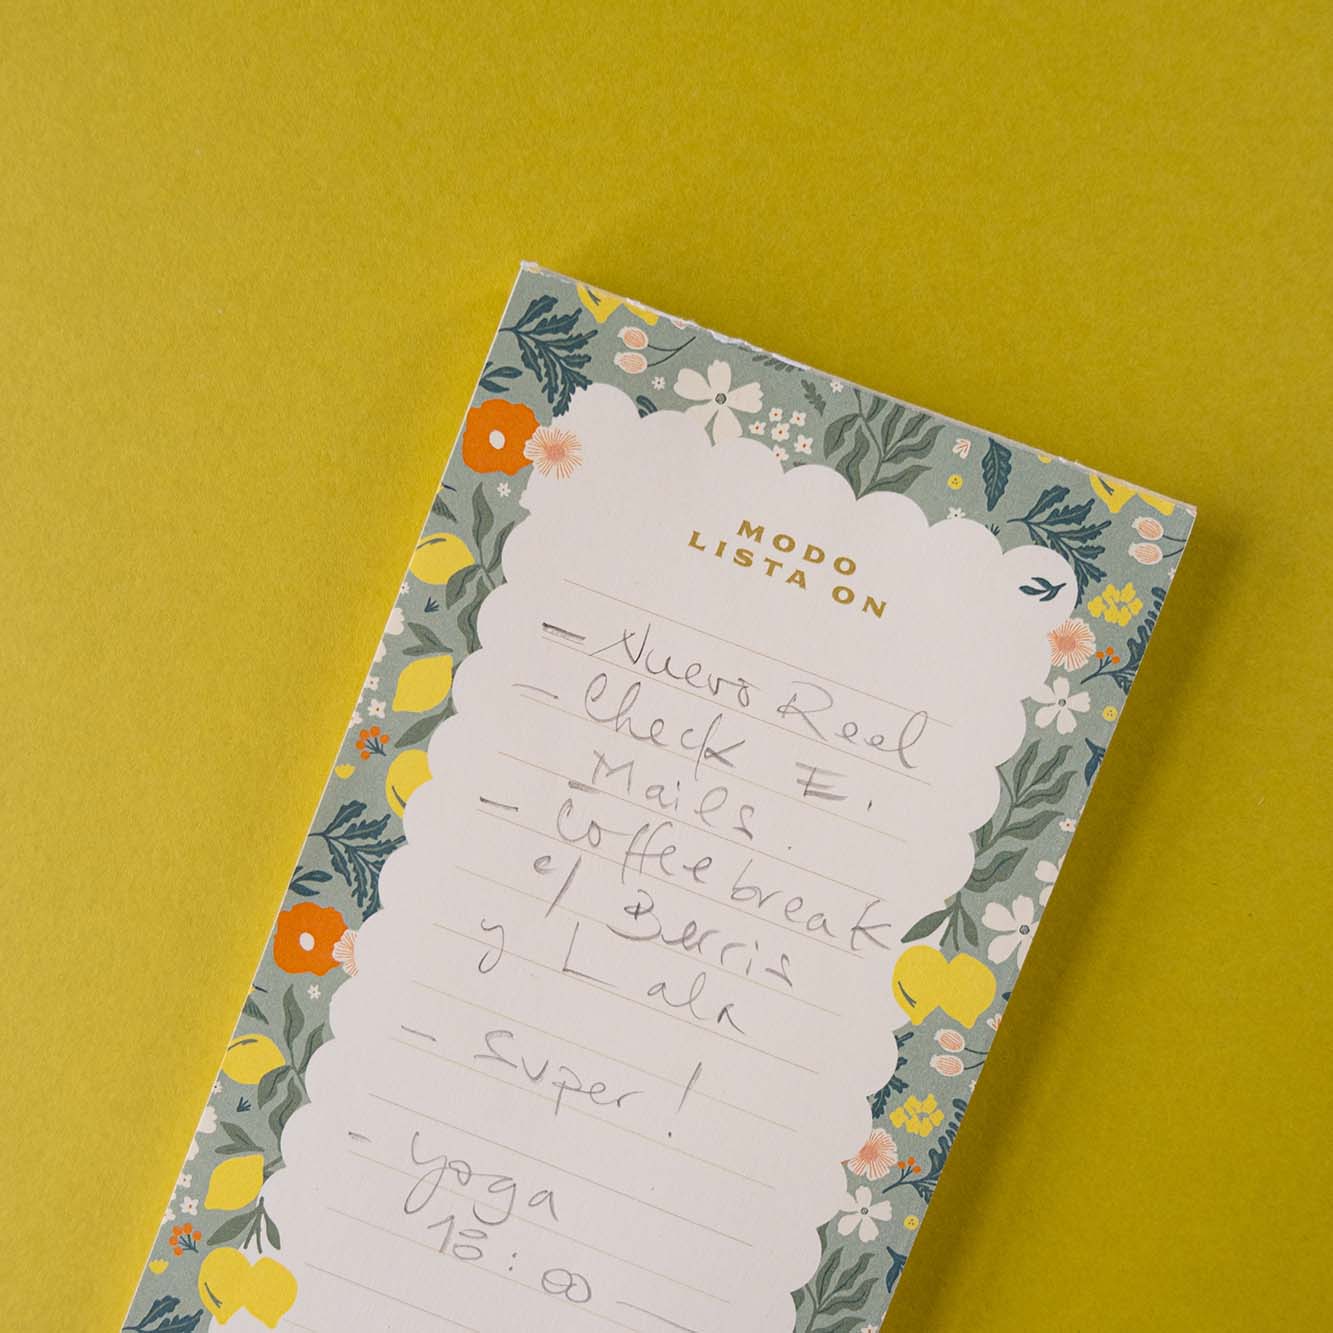 MODO
LISTA ON
- Nuevo Reel
- Check E.
Mails.
- Coffee break
c/ Berris
y Lala
- Super!
- yoga
18:00